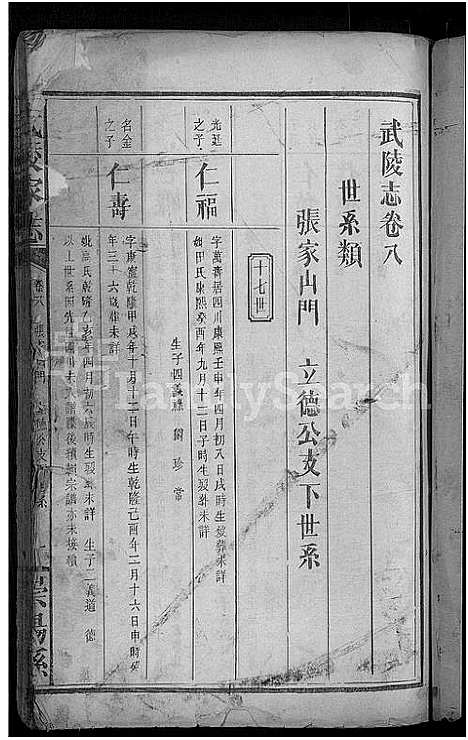 武陵志卷八
世系類
張家山門 立德公支下世系
十七世
光廷之子
仁福
字萬壽居四川康熙壬申年四月初八日戌時生歿葬未詳
細田氏康熙癸酉年九月十二日子時生歿葬未詳
生子四義 樹 珍 常
名金之子
仁壽
字東 乾隆甲戌年十月十二日午時生乾隆己酉年二月十六日申時歿
年三十六歲葬未詳
妣高氏乾隆乙亥年四月初六辰時生歿葬未詳 生子二義道 德
以上世系四先生 川未入譜 後積 宗譜亦未接續
武陵家志
卷八
張家山門
立德公支
世系
崇陽縣
FamilySearch